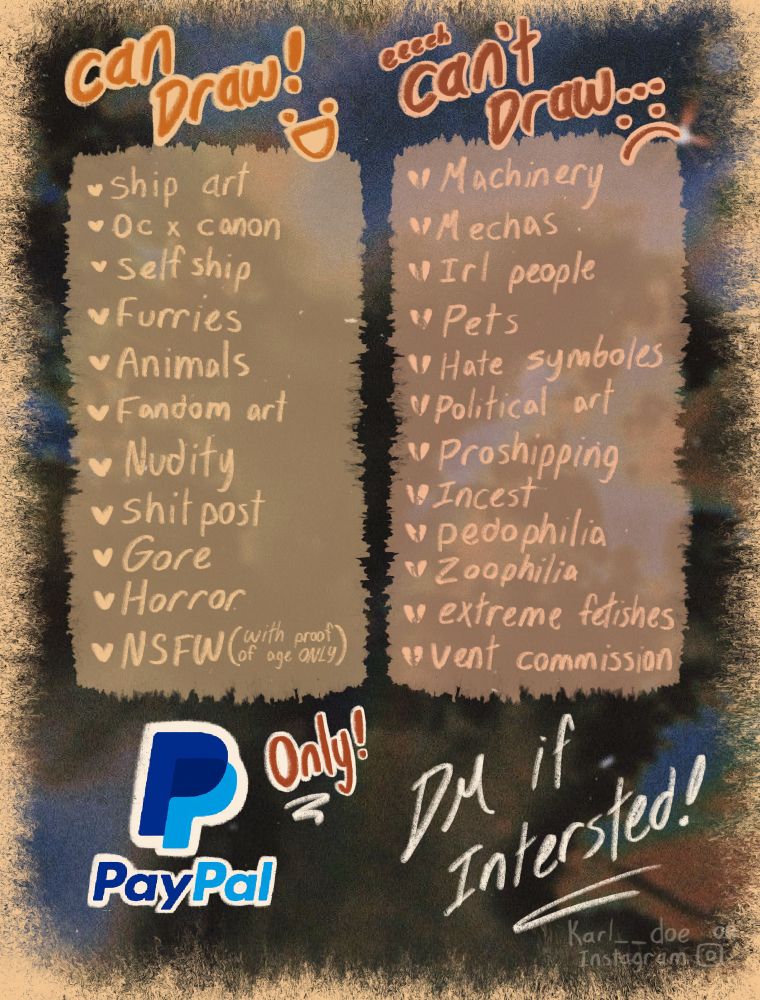 can
Draw!
ship art
Oc x canon
Self ship
Furries
Animals
Fandom art
Nudity
Shit post
Gore
Horror
NSFW (with proof
of age ONLY)
eeeeh
can't
Draw...
Machinery
Mechas
Irl people
Pets
Hate symboles
Political art
Proshipping
Incest
pedophilia
Zoophilia
extreme fetishes
vent commission
Only!
PayPal
DM if
Intersted!
Karl__doe
Instagram